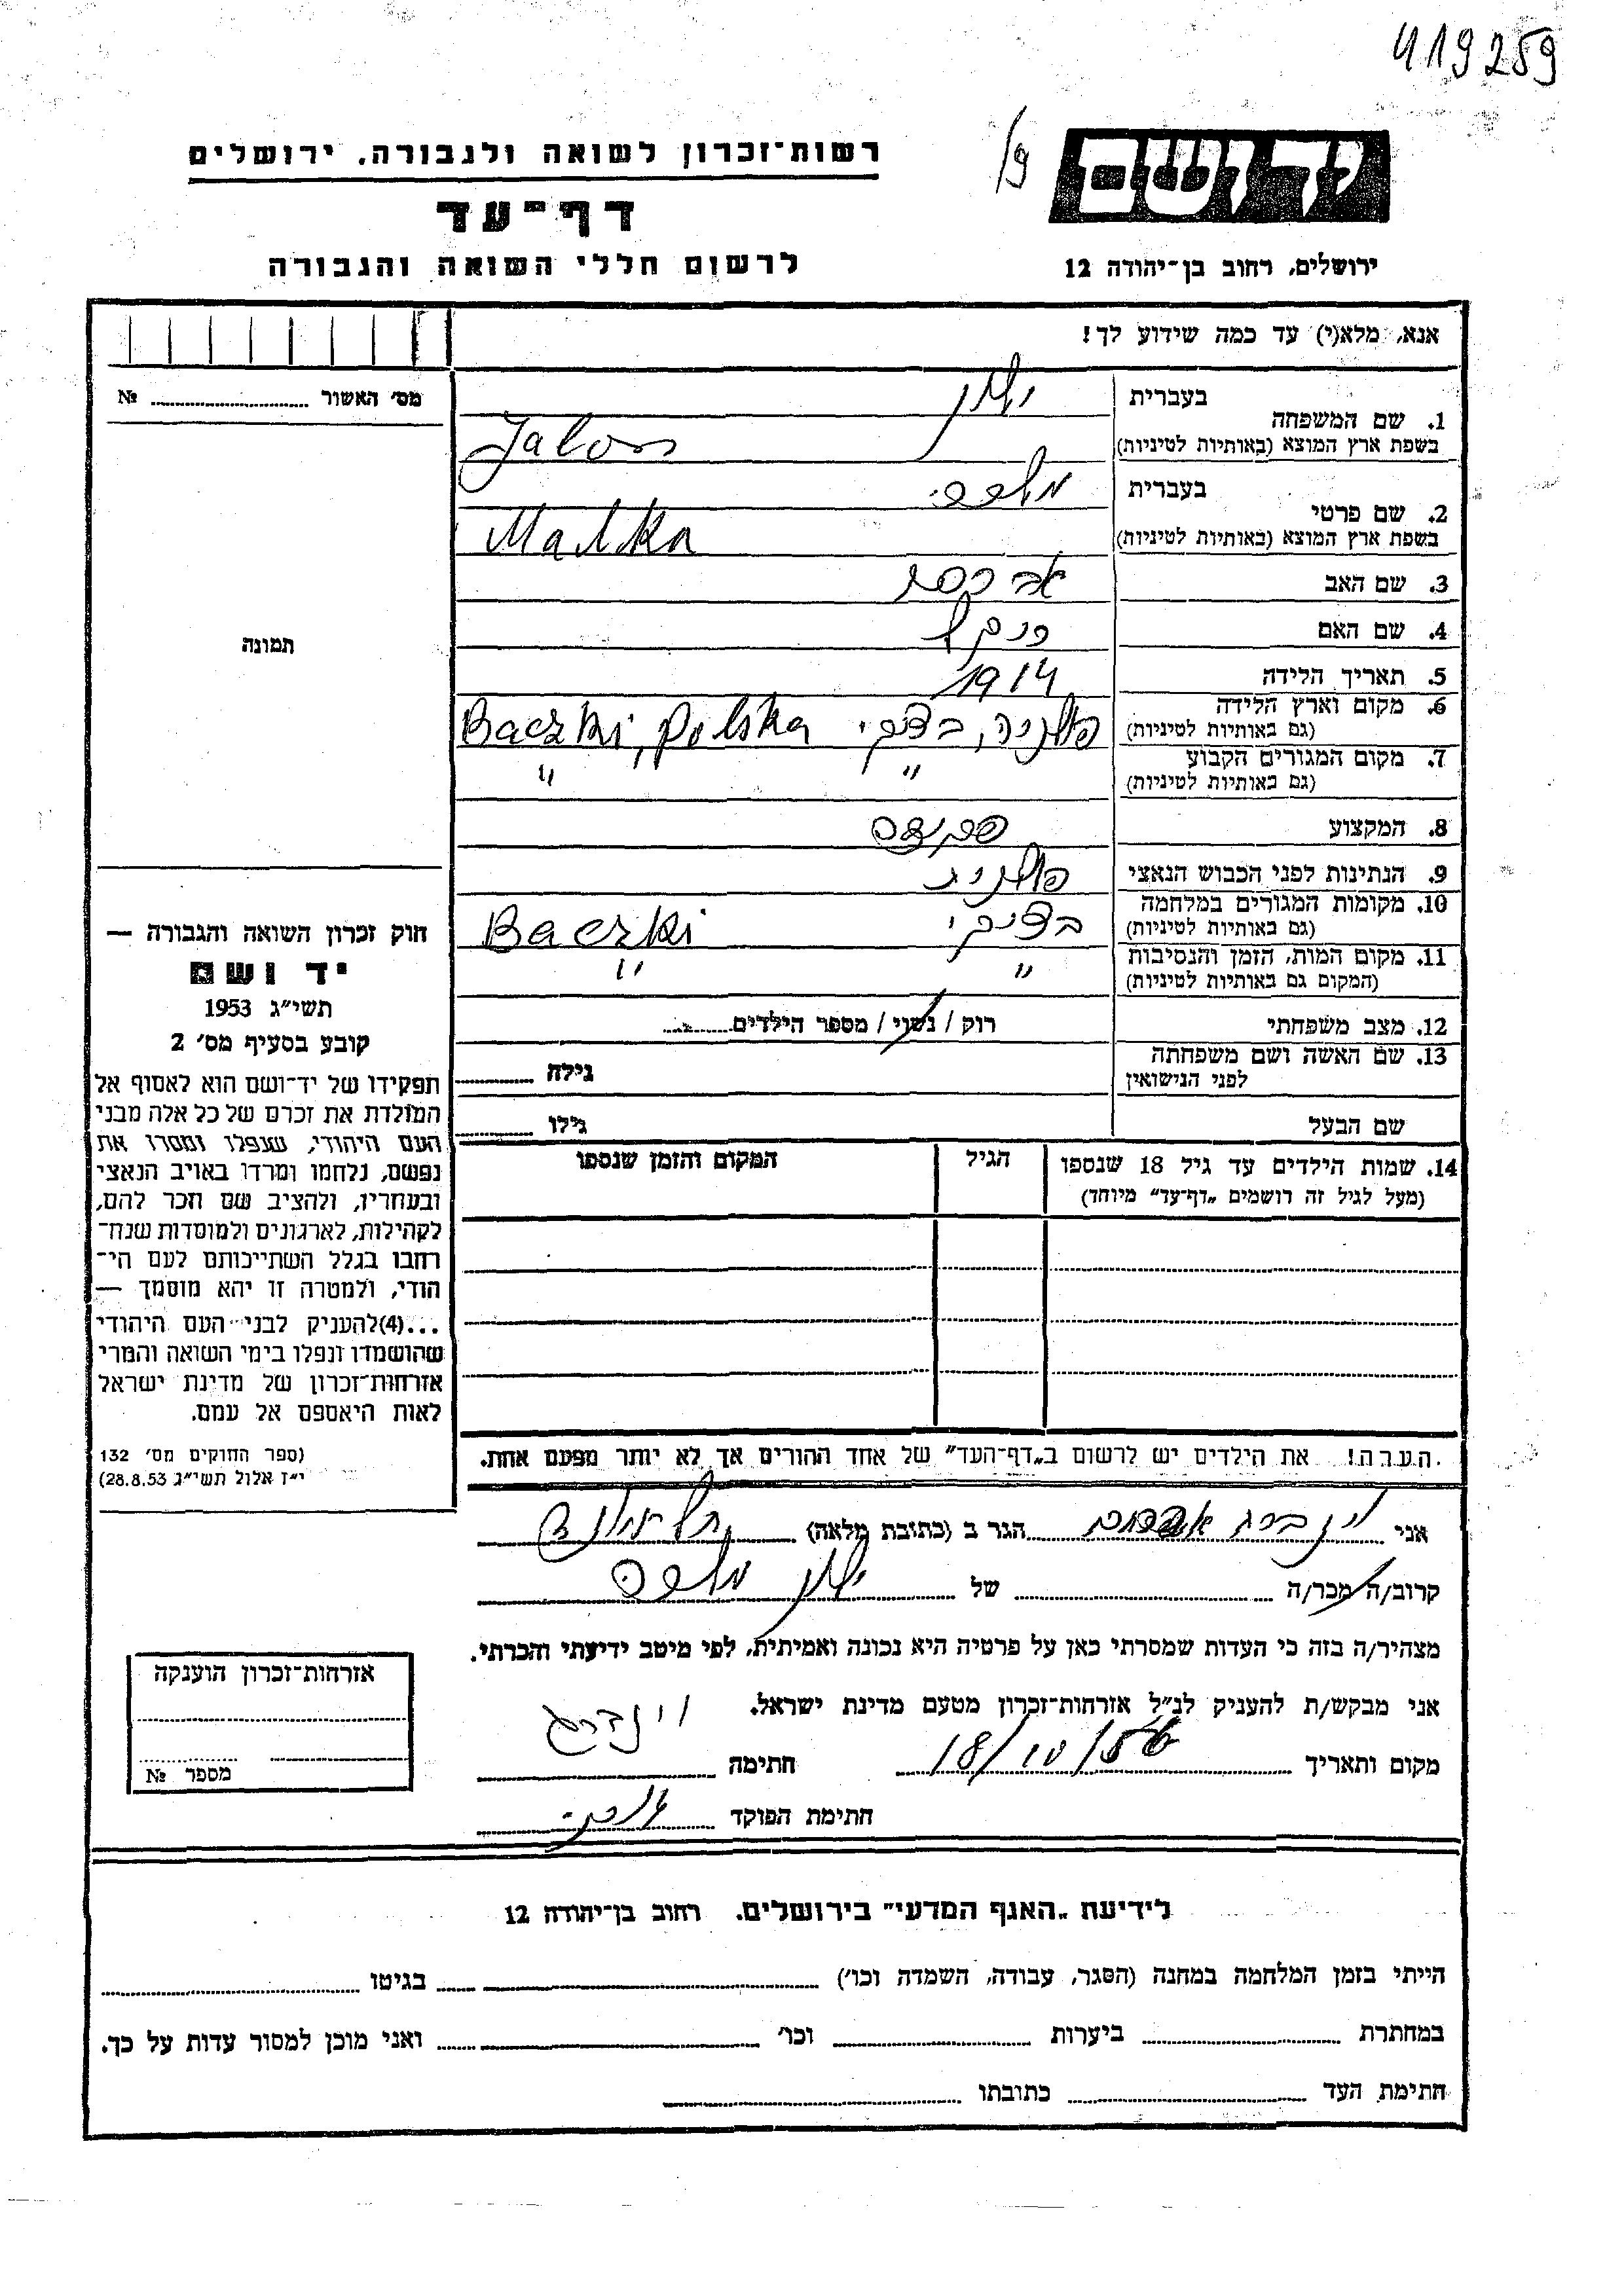 419259
רשות־זכרון לשואה ולגבורה, ירושלים
ידושם
דף־עד
לרשום חללי השואה והגבורה
ירושלים, רחוב בן־יהודה 12
אנא, מלא(י) עד כמה שידוע לך!
מס׳ האשור № 
תמונה
1. שם המשפחה
בעברית ילון
בשפת ארץ המוצא (באותיות לטיניות) Jalon
2. שם פרטי
בעברית מלכה
בשפת ארץ המוצא (באותיות לטיניות) Malka
3. שם האב אברהם
4. שם האם
5. תאריך הלידה 1914
6. מקום וארץ הלידה
(גם באותיות לטיניות) פולניה, בצקי Baczki, Polska
7. מקום המגורים הקבוע
(גם באותיות לטיניות) " "
8. המקצוע
9. הנתינות לפני הכבוש הנאצי פולנית
10. מקומות המגורים במלחמה
(גם באותיות לטיניות) בצקי Baczki
11. מקום המות, הזמן והנסיבות
(המקום גם באותיות לטיניות) " "
12. מצב משפחתי רוק / נשוי / מספר הילדים
13. שם האשה ושם משפחתה
לפני הנישואין גילה
שם הבעל גילו
14. שמות הילדים עד גיל 18 שנספו הגיל המקום והזמן שנספו
(מעל לגיל זה רושמים „דף־עד״ מיוחד)
חוק זכרון השואה והגבורה —
יד ושם
תשי״ג 1953
קובע בסעיף מס׳ 2
תפקידו של יד־ושם הוא לאסוף אל
המולדת את זכרם של כל אלה מבני
העם היהודי, שנפלו ומסרו את
נפשם, נלחמו ומרדו באויב הנאצי
ובעוזריו, ולהציב שם וזכר להם,
לקהילות, לארגונים ולמוסדות שנח־
רחבו בגלל השתייכותם לעם הי־
הודי, ולמטרה זו יהא מוסמך —
...(4) להעניק לבני העם היהודי
שהושמדו ונפלו בימי השואה והמרי
אזרחות־זכרון של מדינת ישראל
לאות היאספם אל עמם.
(ספר החוקים מס׳ 132
י״ז אלול תשי״ג 28.8.53)
הערה! את הילדים יש לרשום ב„דף־העד״ של אחד ההורים אך לא יותר מפעם אחת.
אני וינברג אברהם הגר ב (כתובת מלאה)
קרוב/ה מכר/ה של ילון מלכה
מצהיר/ה בזה כי העדות שמסרתי כאן על פרטיה היא נכונה ואמיתית, לפי מיטב ידיעתי והכרתי.
אני מבקש/ת להעניק לנ״ל אזרחות־זכרון מטעם מדינת ישראל.
מקום ותאריך 18/10/56 חתימה וינברג
חתימת הפוקד
אזרחות־זכרון הוענקה
מספר №
לידיעת „האגף המדעי״ בירושלים, רחוב בן־יהודה 12
הייתי בזמן המלחמה במחנה (הסגר, עבודה, השמדה וכו׳) בגיטו
במחתרת ביערות וכו׳ ואני מוכן למסור עדות על כך.
חתימת העד כתובתו